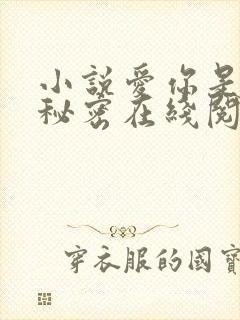 小說愛你是
秘密在綫閱
穿衣服的國寶